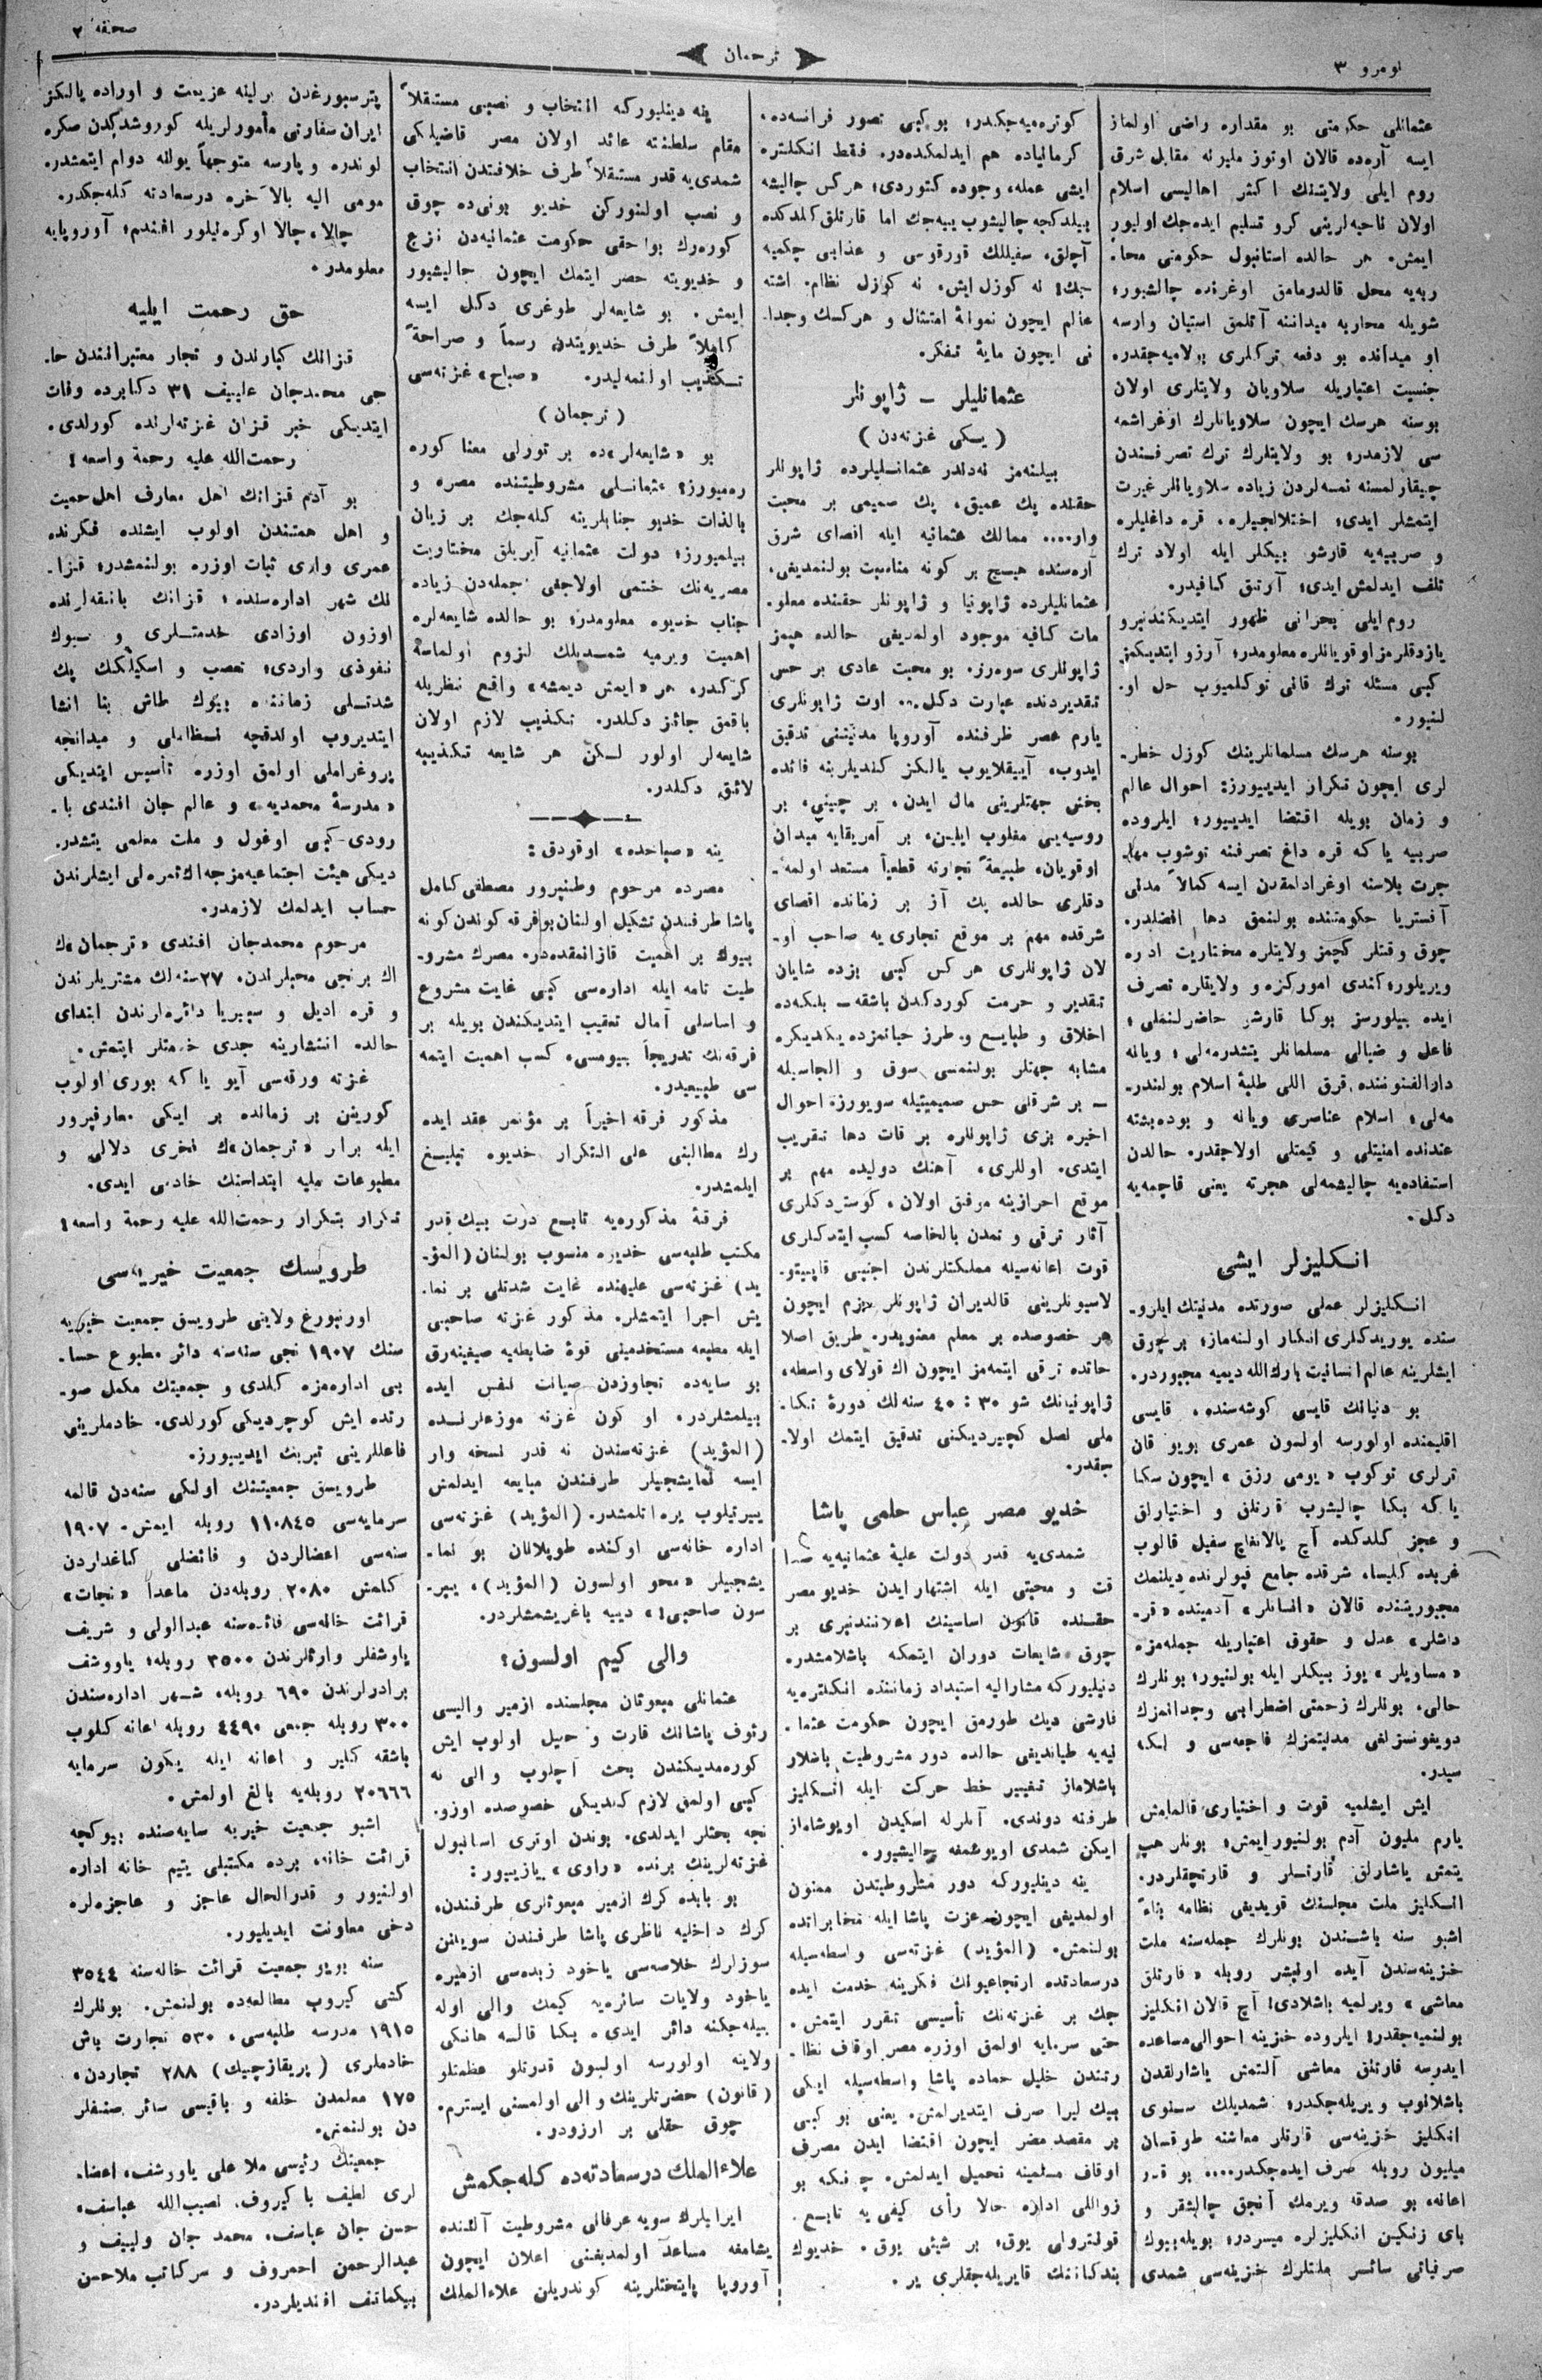 نومرو ٣
ترجمان
صحيفه ٢
عثمانلى حكومتى بو مقداره راضى اولماز
ايسه آره‌ده قالان اوتوز مليونه مقابل شرق
روم ايلى ولايتنك اكثر اهاليسى اسلام
اولان ناحيه‌لرينى كرو تسليم ايده‌جك اوليور
ايمش. هر حالده استانبول حكومتى محا-
ربه‌يه محل قالدرمامق اوغرنده چالشيور؛
شويله محاربه ميداننه آتلمق استيان وارسه
او ميدانده بو دفعه تركلرى بولاميه‌جقدر.
جنسيت اعتباريله سلاويان ولايتلرى اولان
بوسنه هرسك ايچون سلاويانلرك اوغراشمه
سى لازمدر؛ بو ولايتلرك ترك تصرفندن
چيقارلمسنه نمسه‌لردن زياده سلاويانلر غيرت
ايتمشلر ايدى؛ اختلالجيلره، قره داغليلره
و صربيه‌يه قارشو بيكلر ايله اولاد ترك
تلف ايدلمش ايدى؛ آرتق كافيدر.
روم ايلى بحرانى ظهور ايتديكندنبرو
يازدقلرمز اوقويانلره معلومدر؛ آرزو ايتديكمز
كبى مسئله ترك قانى توكلميوب حل او-
لنيور.
بوسنه هرسك مسلمانلرينك كوزل خطر-
لرى ايچون تكرار ايديورز: احوال عالم
و زمان بويله اقتضا ايديور؛ ايلروده
صربيه ياكه قره داغ تصرفنه توشوب مها-
جرت بلاسنه اوغرادلمقدن ايسه كمالا مدنى
آفستريا حكومتنده بولنمق دها افضلدر.
چوق وقتلر كچمز ولايتلره مختاريت اداره
ويريلور؛ كندى اموركزه و ولايتلره تصرف
ايده بيلورسز بوكا قارشو حاضرلنملى؛
فاعل و ضيالى مسلمانلر يتشدرملى؛ ويانه
دارالفنوننده قرق اللى طلبهٔ اسلام بولندر-
ملى؛ اسلام عناصرى ويانه و بوده‌پشته
عندنده امنيتلى و قيمتلى اولاجقدر. حالدن
استفاده‌يه چاليشمه‌لى هجرته يعنى قاچمه‌يه
دكل.
انكليزلر ايشى
انكليزلر عملى صورتده مدنيتك ايلرو-
سنده يوريدكلرى انكار اولنه‌ماز؛ بر چوق
ايشلرينه عالم انسانيت بارك‌الله ديميه مجبوردر.
بو دنيانك قايسى كوشه‌سنده، قايسى
اقليمنده اولورسه اولسون عمرى بويو قان
ترلرى توكوب «يومى رزق» ايچون سكا
ياكه بكا چاليشوب قارتلق و اختيارلق
و عجز كلدكده آچ يالانغاچ سفيل قالوب
غربده كليسا، شرقده جامع قپولرنده ديلنمك
مجبوريتنده قالان «انسانلر» آدمينده «قر-
داشلر» عدل و حقوق اعتباريله جمله‌مزه
«مساويلر» يوز بيكلر ايله بولنيور؛ بونلرك
حالى، بونلرك زحمتى اضطرابى وجدانمزك
دويغونسزلغى مدنيتمزك فاجعه‌سى و لكه
سيدر.
ايش ايشلميه قوت و اختيارى قالمامش
يارم مليون آدم بولنيور ايمش؛ بونلر هپ
يتمش ياشارلق قارتلر و قارتچقلردر.
انكليز ملت مجلسنك قويديغى نظامه بناءً
اشبو سنه باشندن بونلرك جمله‌سنه ملت
خزينه‌سندن آيده اونبشر روبله «قارتلق
معاشى» ويرلميه باشلادى؛ آچ قالان انكليز
بولنميه‌جقدر؛ ايلروده خزينه احوالى مساعده
ايدرسه قارتلق معاشى آلتمش ياشارلقدن
باشلانوب ويريله‌جكدر؛ شمديلك سنوى
انكليز خزينه‌سى قارتلر معاشنه طوقسان
ميليون روبله صرف ايده‌جكدر.... بو قدر
اعانه، بو صدقه ويرمك آنجق چالشقر و
باى زنكين انكليزلره ميسردر؛ بويله بيوك
صرفياتى سائر ملتلرك خزينه‌سى شمدى
كوتره‌ميه‌جكدر؛ بو كبى تصور فرانسه‌ده،
كرمانياده هم ايدلمكده‌در. فقط انكلتره
ايشى عمله، وجوده كتوردى؛ هر كس چاليشه
بيلدكجه چاليشوب ييه‌جك اما قارتلق كلدكده
آچلق، سفيللك قورقوسى و عذابى چكميه
جك! نه كوزل ايش، نه كوزل نظام. اشته
عالم ايچون نمونهٔ امتثال و هر كسك وجدا-
نى ايچون مايهٔ تفكر.
عثمانليلر ــ ژاپونلر
(يسكى غزته‌دن)
بيلنه‌مز نه‌دندر عثمانليلرده ژاپونلر
حقنده پك عميق، پك صميمى بر محبت
وار.... ممالك عثمانيه ايله اقصاى شرق
آره‌سنده هيچ بر كونه مناسبت بولنمديغى،
عثمانليلرده ژاپونيا و ژاپونلر حقنده معلو-
مات كافيه موجود اولمديغى حالده هپمز
ژاپونلرى سوه‌رز. بو محبت عادى بر حس
تقديردنده عبارت دكل... اوت ژاپونلرى
يارم عصر ظرفنده آوروپا مدنيتنى تدقيق
ايدوب، آييقلايوب يالكز كنديلرينه فائده
بخش جهتلرينى مال ايدن، بر چينى، بر
روسيه‌يى مغلوب ايلين، بر آمريقايه ميدان
اوقويان، طبيعةً تجارته قطعياً مستعد اولمه-
دقلرى حالده پك آز بر زمانده اقصاى
شرقده مهم بر موقع تجارى‌يه صاحب او-
لان ژاپونلرى هر كس كبى بزده شايان
تقدير و حرمت كوردكدن باشقه ــ بلكه‌ده
اخلاق و طبايع و طرز حياتمزده يكديكره
مشابه جهتلر بولنمسى سوق و الجاسيله
ــ بر شرقلى حس صميميتيله سويورز. احوال
اخيره بزى ژاپونلره بر قات دها تقريب
ايتدى. اونلرى، آهنك دوليده مهم بر
موقع احرازينه موفق اولان، كوستردكلرى
آثار ترقى و تمدن بالخاصه كسب ايتدكلرى
قوت اعانه‌سيله مملكتلرندن اجنبى قاپيتو-
لاسيونلرينى قالديران ژاپونلر بزم ايچون
هر خصوصده بر معلم معنويدر. طريق اصلا
حاتده ترقى ايتمه‌مز ايچون اك قولاى واسطه،
ژاپونيانك شو ٣٠ : ٤٠ سنه‌لك دورهٔ تكا-
ملى نصل كچيرديكنى تدقيق ايتمك اولا-
جقدر.
خديو مصر عباس حلمى پاشا
شمدى‌يه قدر دولت عليهٔ عثمانيه‌يه صدا
قت و محبتى ايله اشتهار ايدن خديو مصر
حقنده قانون اساسينك اعلانندنبرى بر
چوق شايعات دوران ايتمكه باشلامشدر.
دنيليوركه مشاراليه استبداد زماننده انكلتره‌يه
قارشى ديك طورمق ايچون حكومت عثما-
نيه‌يه طيانديغى حالده دور مشروطيت باشلار
باشلاماز تغيير خط حركت ايله انكليز
طرفنه دوندى. آنلرله اسكيدن اويوشاماز
ايكن شمدى اويوشمغه چاليشيور.
ينه دينليوركه دور مشروطيتدن ممنون
اولمديغى ايچون عزت پاشا ايله مخابراتده
بولنمش. (المؤيد) غزته‌سى واسطه‌سيله
درسعادتده ارتجاعيونك فكرينه خدمت ايده
جك بر غزته‌نك تأسيسى تقرر ايتمش.
حتى سرمايه اولمق اوزره مصر اوقاف نظا-
رتندن خليل حماده پاشا واسطه‌سيله ايكى
بيك ليرا صرف ايتديرلمش. يعنى بو كبى
بر مقصد مضر ايچون اقتضا ايدن مصرف
اوقاف مسلمينه تحميل ايدلمش. چونكه بو
زواللى اداره حالا رأى كيفى يه تابع.
قونترولى يوق، بر شيئى يوق. خديوك
بندكاننك قايريله‌جقلرى ير.
ينه دينليوركه انتخاب و نصبى مستقلاً
مقام سلطنته عائد اولان مصر قاضيلكى
شمدى‌يه قدر مستقلاً طرف خلافتدن انتخاب
و نصب اولنوركن خديو بونى‌ده چوق
كوره‌رك بو احقى حكومت عثمانيه‌دن نزع
و خديويته حصر ايتمك ايچون چاليشيور
ايمش. بو شايعه‌لر طوغرى دكل ايسه
كاملاً طرف خديويتدن رسماً و صراحةً
تكذيب اولنمه‌ليدر. «صباح» غزته‌سى
(ترجمان)
بو «شايعه‌لر»ده بر تورلى معنا كوره
ره‌ميورز؛ عثمانلى مشروطيتنده مصره و
بالذات خديو جنابلرينه كله‌جك بر زيان
بيلميورز؛ دولت عثمانيه آيريلق مختاريت
مصريه‌نك ختمى اولاجغى جمله‌دن زياده
جناب خديوه معلومدر؛ بو حالده شايعه‌لره
اهميت ويرميه شمديلك لزوم اولماسه
كركدر. هر «ايمش ديمشه» واقع نظريله
باقمق جائز دكلدر. تكذيب لازم اولان
شايعه‌لر اولور لكن هر شايعه تكذيبه
لائق دكلدر.
ينه «صباحده» اوقودق:
مصرده مرحوم وطنپرور مصطفى كامل
پاشا طرفندن تشكيل اولنان بو فرقه كوندن كونه
بيوك بر اهميت قازانمقده‌در. مصرك مشرو-
طيت نامه ايله اداره‌سى كبى غايت مشروع
و اساسلى آمال تعقيب ايتديكندن بويله بر
فرقه‌نك تدريجاً بيومسى، كسب اهميت ايتمه
سى طبيعيدر.
مذكور فرقه اخيراً بر مؤتمر عقد ايده
رك مطالبنى على التكرار خديوه تبليغ
ايلمشدر.
فرقهٔ مذكوره‌يه تابع درت بيك قدر
مكتب طلبه‌سى خديوه منسوب بولنان (المؤ-
يد) غزته‌سى عليهنده غايت شدتلى بر نما-
يش اجرا ايتمشلر. مذكور غزته صاحبى
ايله مطبعه مستخدمينى قوهٔ ضابطه‌يه صيغينه‌رق
بو سايه‌ده تجاوزدن صيانت نفس ايده
بيلمشلردر. او كون غزته موزعلرنده
(المؤيد) غزته‌سندن نه قدر نسخه وار
ايسه نمايشجيلر طرفندن مبايعه ايدلمش
ييرتيلوب يره اتلمشدر. (المؤيد) غزته‌سى
اداره خانه‌سى اوكنده طوپلانان بو نما-
يشجيلر «محو اولسون (المؤيد)، يير-
سون صاحبى!» دييه باغريشمشلردر.
والى كيم اولسون؟
عثمانلى مبعوثان مجلسنده ازمير واليسى
رئوف پاشانك قارت و حيل اولوب ايش
كوره‌مديكندن بحث آچلوب والى نه
كبى اولمق لازم كلديكى خصوصده اوزو-
نجه بحثلر ايدلدى. بوندن اوترى استانبول
غزته‌لرينك برنده «راوى» يازييور:
بو بابده كرك ازمير مبعوثلرى طرفندن،
كرك داخليه ناظرى پاشا طرفندن سويلنن
سوزلرك خلاصه‌سى ياخود زبده‌سى ازميره
ياخود ولايات سائره‌يه كيمك والى اوله
بيله‌جكنه دائر ايدى. بكا قالسه هانكى
ولاينه اولورسه اولسون قدرتلو عظمتلو
(قانون) حضرتلرينك والى اولمسنى ايسترم.
چوق حقلى بر ارزودر.
علاءالملك درسعادته‌ده كله‌جكمش
ايرانيلرك سويه عرفانى مشروطيت آلتنده
يشامغه مساعد اولمديغنى اعلان ايچون
آوروپا پايتختلرينه كوندريلن علاءالملك
پترسبورغدن برلينه عزيمت و اوراده يالكز
ايران سفارتى مأمورلريله كوروشدكدن صكره
لوندره و پارسه متوجهاً يولنه دوام ايتمشدر.
مومى اليه بالآخره درسعادته كله‌جكدر.
چالا، چالا اوكره‌نيلور افندم؛ آوروپايه
معلومدر.
حق رحمت ايليه
قزانك كبارلندن و تجار معتبرانندن حا-
جى محمدجان عليييف ٣١ دكابرده وفات
ايتديكى خبر قزان غزته‌لرنده كورلدى.
رحمت‌الله عليه رحمة واسعه!
بو آدم قزانك اهل معارف اهل حميت
و اهل همتندن اولوب ايشنده فكرنده
عمرى وارى ثبات اوزره بولنمشدر؛ قزا-
نك شهر اداره‌سنده؛ قزانك بانقه‌لرنده
اوزون اوزادى خدمتلرى و بيوك
نفوذى واردى؛ تعصب و اسكيلكك پك
شدتلى زماننده بيوك طاش بنا انشا
ايتديروب اولدقچه نظاملى و ميدانجه
پروغراملى اولمق اوزره تأسيس ايتديكى
«مدرسهٔ محمديه» و عالم جان افندى با-
رودى كبى اوغول و ملت معلمى يتشدر-
ديكى هيئت اجتماعيه‌مزجه اك ثمره‌لى ايشلرندن
حساب ايدلمك لازمدر.
مرحوم محمدجان افندى «ترجمان»ك
اك برنجى محبلرندن، ٢٧ سنه‌لك مشتريلرندن
و قره اديل و سيبريا دائره‌لرندن ابتداى
حالده انتشارينه جدى خدمتلر ايتمش.
غزته ورقه‌سى آيو ياكه بورى اولوب
كورينن بر زمانده بر ايكى معارفپرور
ايله برابر «ترجمان»ك فخرى دلالى و
مطبوعات مليه ابتداسنك خادمى ايدى.
تكرار بتكرار رحمت‌الله عليه رحمة واسعه!
طرويسك جمعيت خيريه‌سى
اورنبورغ ولايتى طرويسق جمعيت خيريه
سنك ١٩٠٧ نجى سنه‌سنه دائر مطبوع حسا-
بى اداره‌مزه كلدى و جمعيتك مكمل صو-
رتده ايش كوچرديكى كورلدى. خادملرينى
فاعللرينى تبريك ايديورز.
طرويسق جمعيتنك اولكى سنه‌دن قالمه
سرمايه‌سى ١١٠٨٤٥ روبله ايمش. ١٩٠٧
سنه‌سى اعضالردن و فائضلى كاغداردن
كلمش ٢٠٨٠ روبله‌دن ماعدا «نجات»
قرائت خانه‌سى فائده‌سنه عبدالولى و شريف
ياوشفلر وارثلرندن ٣٥٠٠ روبله؛ ياووشف
برادرلرندن ٦٩٠ روبله، شهر اداره‌سندن
٣٠٠ روبله جمعى ٤٤٩٠ روبله اعانه كلوب
باشقه كلير و اعانه ايله يكون سرمايه
٢٠٦٦٦ روبله‌يه بالغ اولمش.
اشبو جمعيت خيريه سايه‌سنده بيوكچه
قرائت خانه، برده مكتبلى يتيم خانه اداره
اولنيور و قدرالحال عاجز و عاجزه‌لره
دخى معاونت ايديليور.
سنه بويو جمعيت قرائت خانه‌سنه ٣٥٤٤
كشى كيروب مطالعه‌ده بولنمش. بونلرك
١٩١٥ مدرسه طلبه‌سى، ٥٣٠ تجارت باش
خادملرى (پريقازچيك) ٢٨٨ تجاردن،
١٧٥ معلمدن خلفه و باقيسى سائر صنفلر
دن بولنمش.
جمعيتك رئيسى ملا على ياووشف، اعضا-
لرى لطيف باكيروف، نصيب‌الله عباسف،
حسن جان عباسف، محمد جان وليييف و
عبدالرحمن احمروف و سركاتب ملا حسن
بيكمانف افنديلردر.